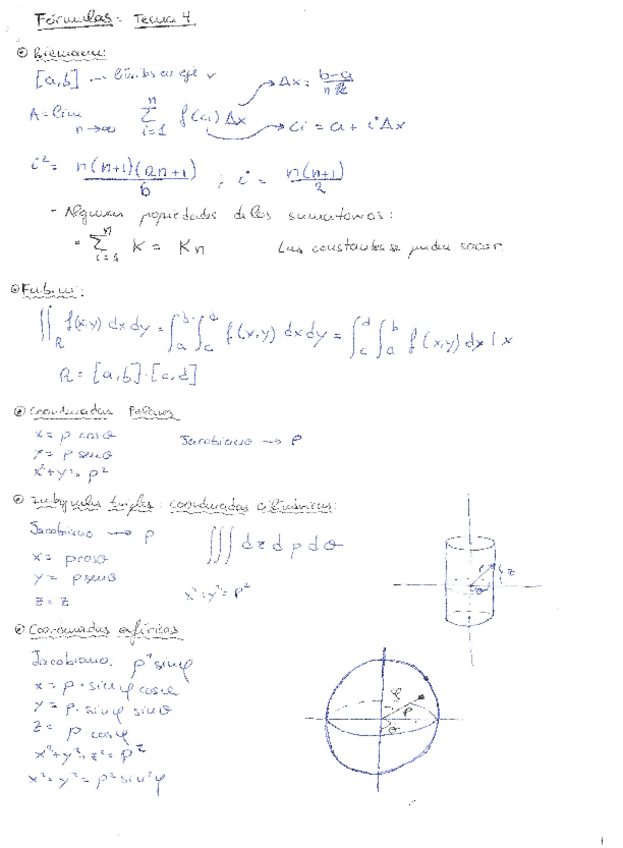 Fórmulas: Tema 4
Riemann:
[a,b] → límites en eje x
Δx = b-a / n
A = lim n→∞ Σ i=1 n f(ci) Δx
ci = a + i Δx
i² = n(n+1)(2n+1) / 6 ; i = n(n+1) / 2
- Algunas propiedades de los sumatorios:
Σ i=1 n K = Kn Las constantes se pueden sacar
Fubini:
∬R f(x,y) dx dy = ∫a b ∫c d f(x,y) dx dy = ∫c d ∫a b f(x,y) dx
R = [a,b]·[c,d]
Coordenadas Polares
x = ρ cosθ
Jacobiano → ρ
y = ρ senθ
x²+y² = ρ²
Integrales triples: coordenadas cilíndricas:
Jacobiano → ρ
∭ dz dρ dθ
x = ρcosθ
y = ρsenθ
z = z
x²+y² = ρ²
ρ
z
θ
Coordenadas esféricas
Jacobiano: ρ² sinφ
x = ρ·sinφ cosθ
y = ρ·sinφ sinθ
z = ρ cosφ
x²+y²+z² = ρ²
x²+y² = ρ² sin²φ
φ
ρ
θ